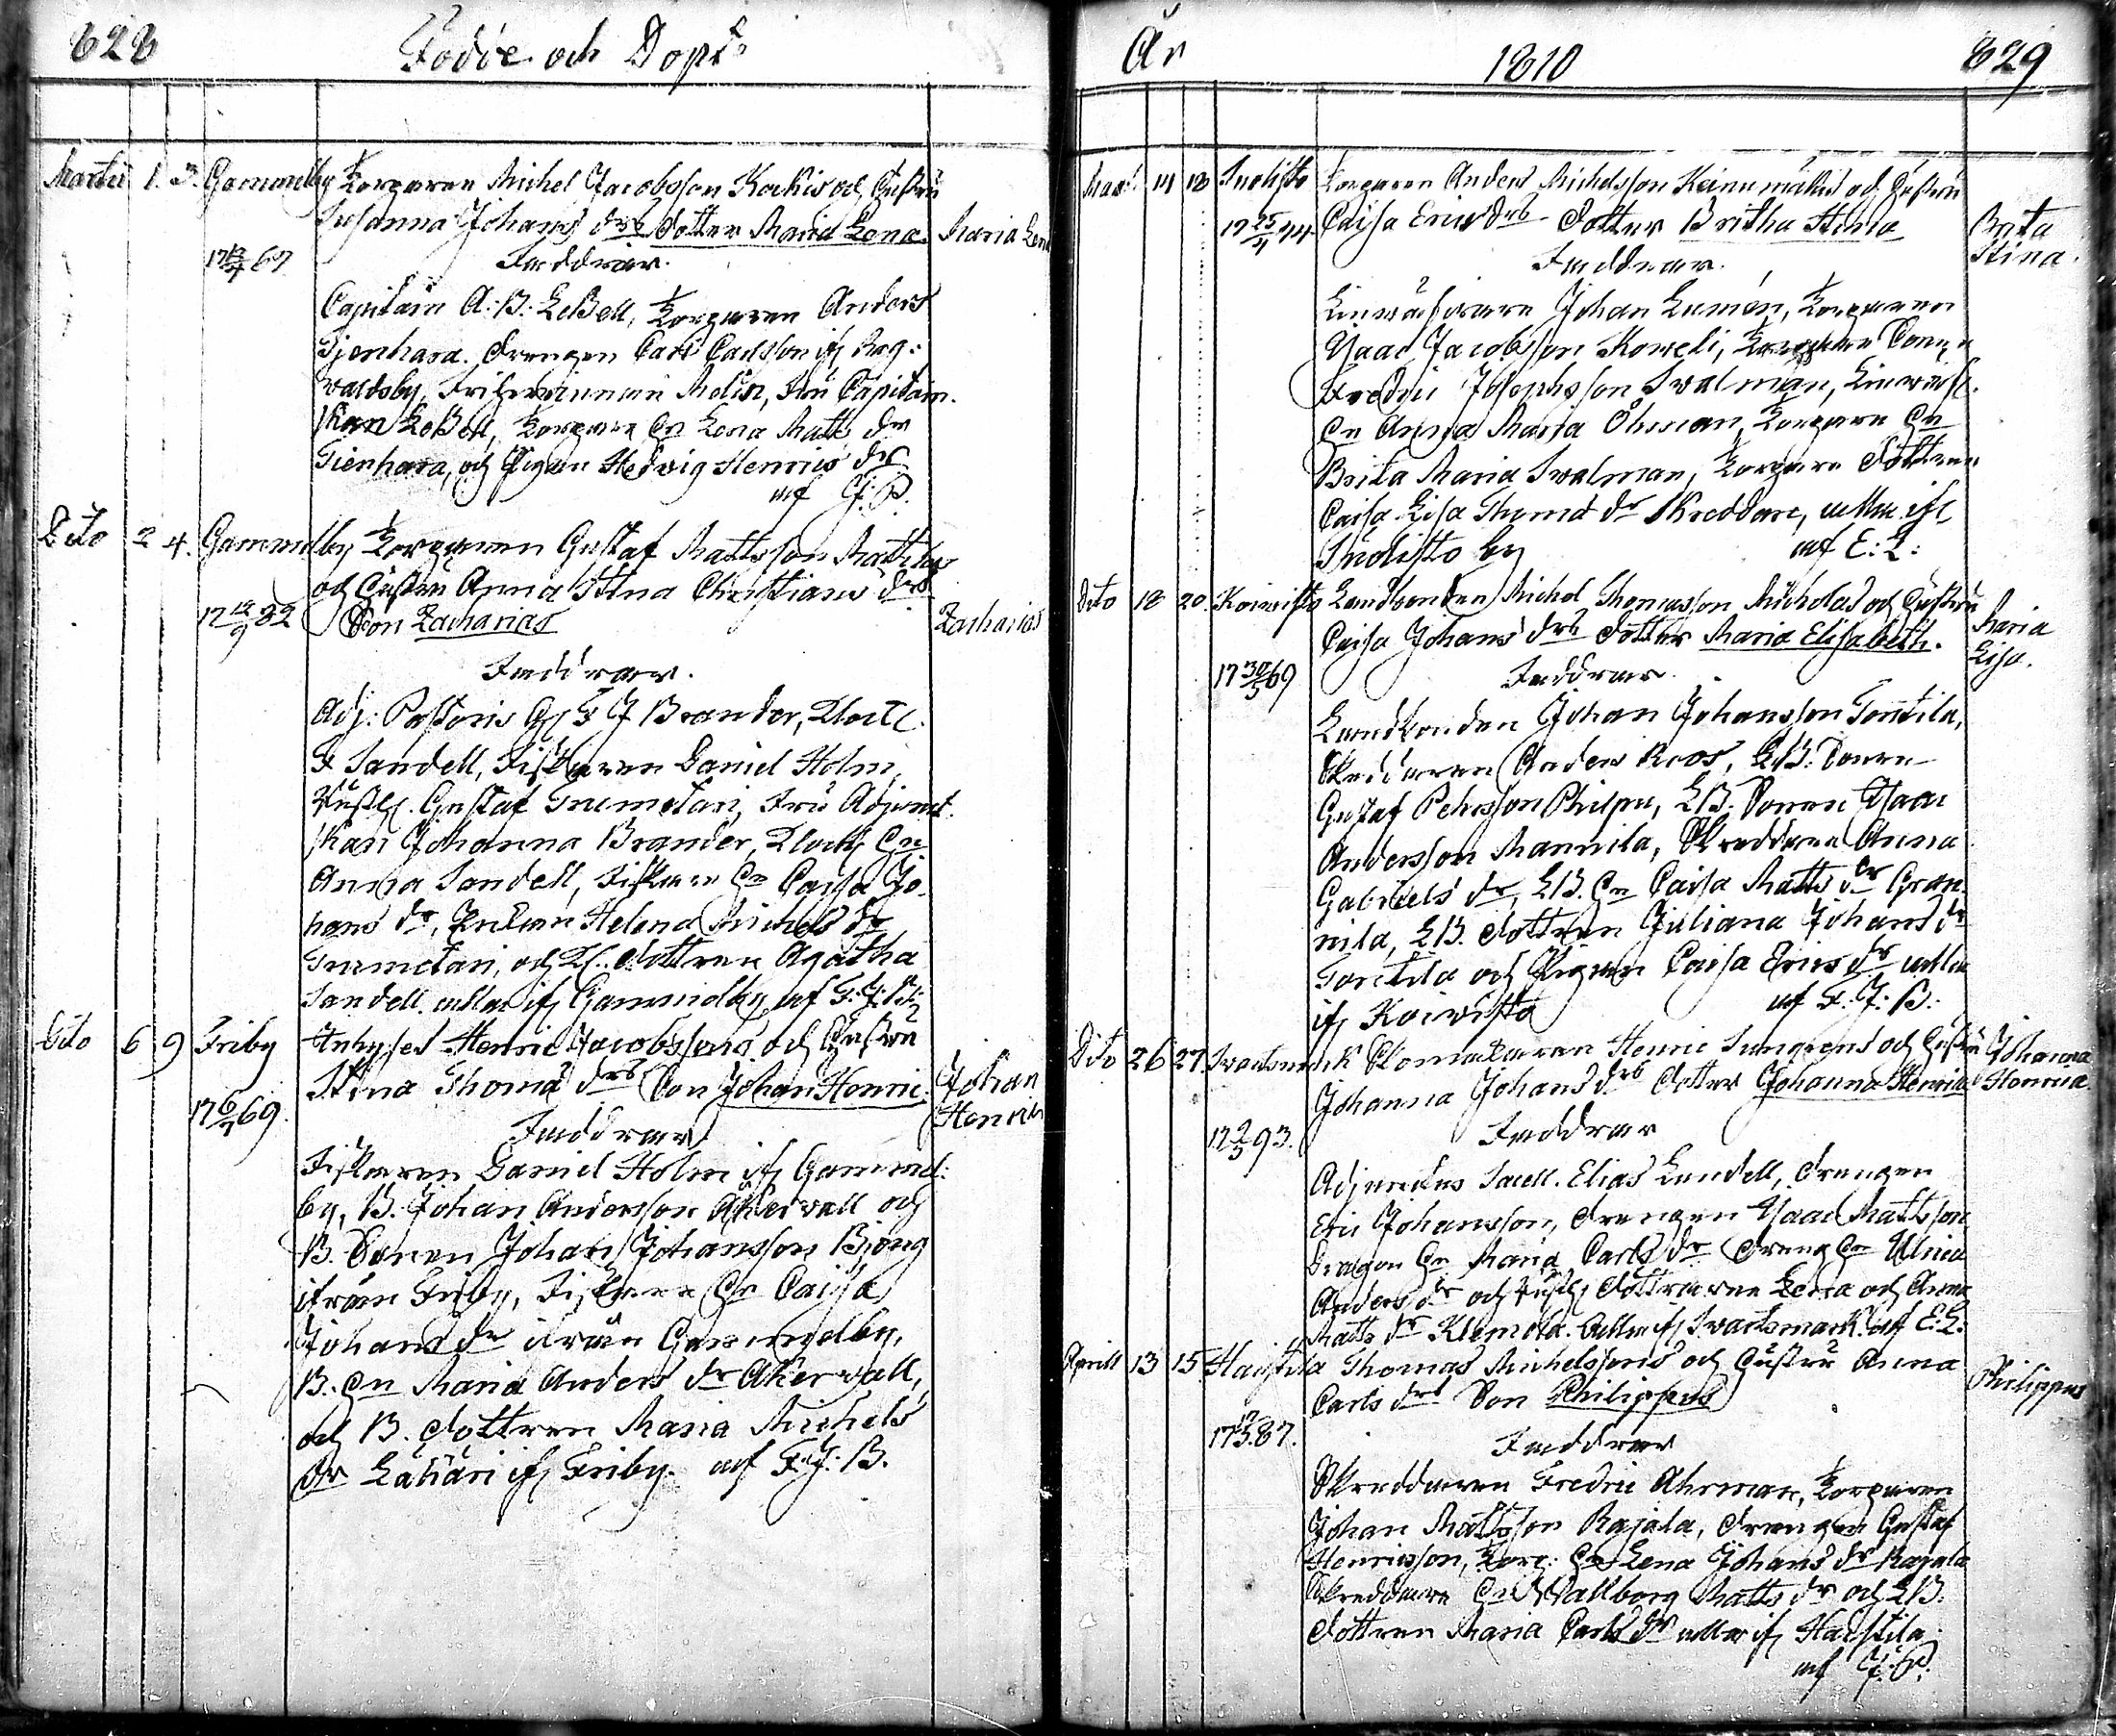 828 Födde och Dopte
Martii 1. 3. Gammelby Torparen Michel Jacobsson Kockis och hustru
Susanna Johans drs dotter Maria Lena. Maria Lena
17 13/4 67 Faddrar.
Capitain A: B: LeBell, Torparen Anders
Tjenhara. drengen Carl Carlsson ifr Rag:
valdsby, Friherrinnan Mellin, Fru Capitain.
skan LeBell, Torpare Hn Lena Matts dr
Tienhara, och Pigan Hedvig Henrics dr
af J. P.
Dito 2 4. Gammelby Torparen Gustaf Mattsson
och hustru Anna Stina Christians drs
17 12/9 82 Son Zacharias Zacharias
Faddrar.
Adj: Pastoris F J Brander, Klock.
F Sandell, Fiskaren Daniel Holm,
Gustaf Trumetari, Fru Adjunct.
skan Johanna Brander, Klock Hn
Anna Sandell, Fiskare Hn Caisa Jo
hans dr, Enkan Helena Michels dr
Trumetari, och Kl. dottren Agatha
Sandell. alla ifr Gammelby af F: J: B:
Dito 6 9 Friby Inhyses Henric Jacobssons och hustru
Stina Thomæ drs Son Johan Henric. Johan
Henrik
17 69. Faddrar
Fiskaren Daniel Holm ifr Gammel:
by, B. Johan Andersson Åkervall och
B. Sonen Johan Johansson Bjong
ifrån Friby, Fiskare Hn Caisa
Johans dr ifrån Gammelby,
B. Hn Maria Anders dr Åkervall,
och B. dottren Maria Michels
dr Lähäri ifr Friby. af F: J: B.
År 1810 829
Mart. 14 18 Torparen Anders Michelsson Keinumäkis och hustru
17 25/4 74 Caisa Erics drs dotter Britha Stina Brita
Stina.
Faddrar.
Johan Lumén, Torparen
Isaac Jacobsson Koweli, Torpare Sonen
Fredric Josephsson Swalman,
Hn Anna Maria Öhman, Torpare Hn
Brita Maria Swalman, Torpare dottren
Caisa Lisa Thomæ dr Skreddare, alla ifr
by af E: L:
Dito 18 20. Koivisto Landbonden Michel Thomasson och hustru
Caisa Johans drs dotter Maria Elisabeth. Maria
Lisa.
17 30/5 69 Faddrar.
Landbonden Johan Johansson Torttila,
Skreddaren Anders Roos, LB: Sonen
Gustaf Pehrsson Philpu, LB. Sonen Isaac
Andersson Mannila, Skreddare Anna
Gabriels dr, LB. Hn Caisa Matts dr Gran
nila, LB. dottren Juliana Johans dr
Torttila och Pigan Caisa Erics dr alla
ifr Koivisto af F: J: B:
Dito 26 27. Svartsmark Skomakaren Henric Sungrens och hustru Johanna
Johanna Johans drs dotter Johanna Henrica Henrica.
17 2/5 93. Faddrar
Adjunctus Sacell. Elias Lundell, drengen
Eric Johansson, drengen Isaac Mattsson
Dragon Hn Maria Carls dr dreng Hn Ulrica
Anders dr och dottrarne Lena och Anna
Matts dr Klemola. alla ifr Svartsmark. af E: L:
Aprill 13 15 Haistila Thomas Michelssons och hustru Anna
Carls drs Son Philippus Philippus
17 87. Faddrar
Skreddaren Fredric Ahrman, Torparen
Johan Mattsson Rajala, drengen Gustaf
Henricsson, Torp: Hn Lena Johans dr Rajala
Skreddare Hn Wallborg Matts dr och LB.
dottren Maria Carls dr alla ifr Haistila
af J: P.